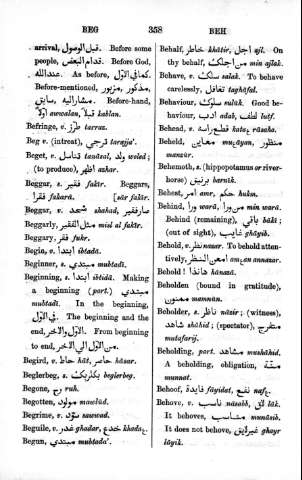 BEG 358 BEH
arrival, قبل الوصول. Before some
people, قدام البعض. Before God,
عندالله. As before, كما في الاول.
Before-mentioned, مذكور, مزبور,
مشاراليه. Before-hand, سابق,
اولا awwalan, قبلا kablan.
Befringe, v. طرز tarraz.
Beg v. (intreat), ترجي tarajja'.
Beget, v. تناسل tanāsal, ولد walad;
(to produce), اظهر ashar.
Beggar, s. فقير fakīr. Beggars,
فقرا fukarā.
Beggar, v. شحد shahad, صار فقير [sār fakīr.
Beggarly, مثل الفقير misl al fakīr.
Beggary, فقر fukr.
Begin, v. ابتدا ibtadā.
Beginner, s. مبتدي mubtadī.
Beginning, s. ابتدا ibtidā. Making
a beginning (part.) مبتدي
mubtadī. In the beginning,
في الاول. The beginning and the
end, الاول والاخر. From beginning
to end, من الاول الي الاخر.
Begird, v. حاط hāt, حاصر hāsar.
Beglerbeg, s. بكلربك beglerbeg.
Begone, روح ruh.
Begotten, مولود mawlūd.
Begrime, v. سوّد sawwad.
Beguile, v. خدع, غدر ghadar khadaع.
Begun, مبتدي mubtada'.
Behalf, خاطر khātir, اجل ajl. On
thy behalf, من اجلك min ajlak.
Behave, v. سلك salak. To behave
carelessly, تغافل taghāfal.
Behaviour, سلوك sulūk. Good be-
haviour, ادب adab, لطف lutf.
Behead, v. قطع راسه kata, rāsaha.
Beheld, معاين muعāyan, منظور
manzūr.
Behemoth, s. (hippopotamus or river-
horse) برنيق barnīk.
Behest, امر amr, حكم hukm.
Behind, ورا warā, من ورا min warā.
Behind (remaining), باقي bāki;
(out of sight), غايب ghāyib.
Behold, v. نظر nazar. To behold atten-
tively, امعن النظر amعan annazar.
Behold! هانذا hānazā.
Beholden (bound in gratitude),
ممنون mamnūn.
Beholder, s. ناظر nāzir; (witness),
شاهد shāhid; (spectator), متفرج
mutafarij.
Beholding, part. مشاهد mushāhid.
A beholding, obligation, منة
munnat.
Behoof, فايدة fāyidat, نفع nafع.
Behove, v. ناسب nāsabh, لاق lāk.
It behoves, مناسب munāsib.
It does not behove, غير لايق ghayr
lāyik.